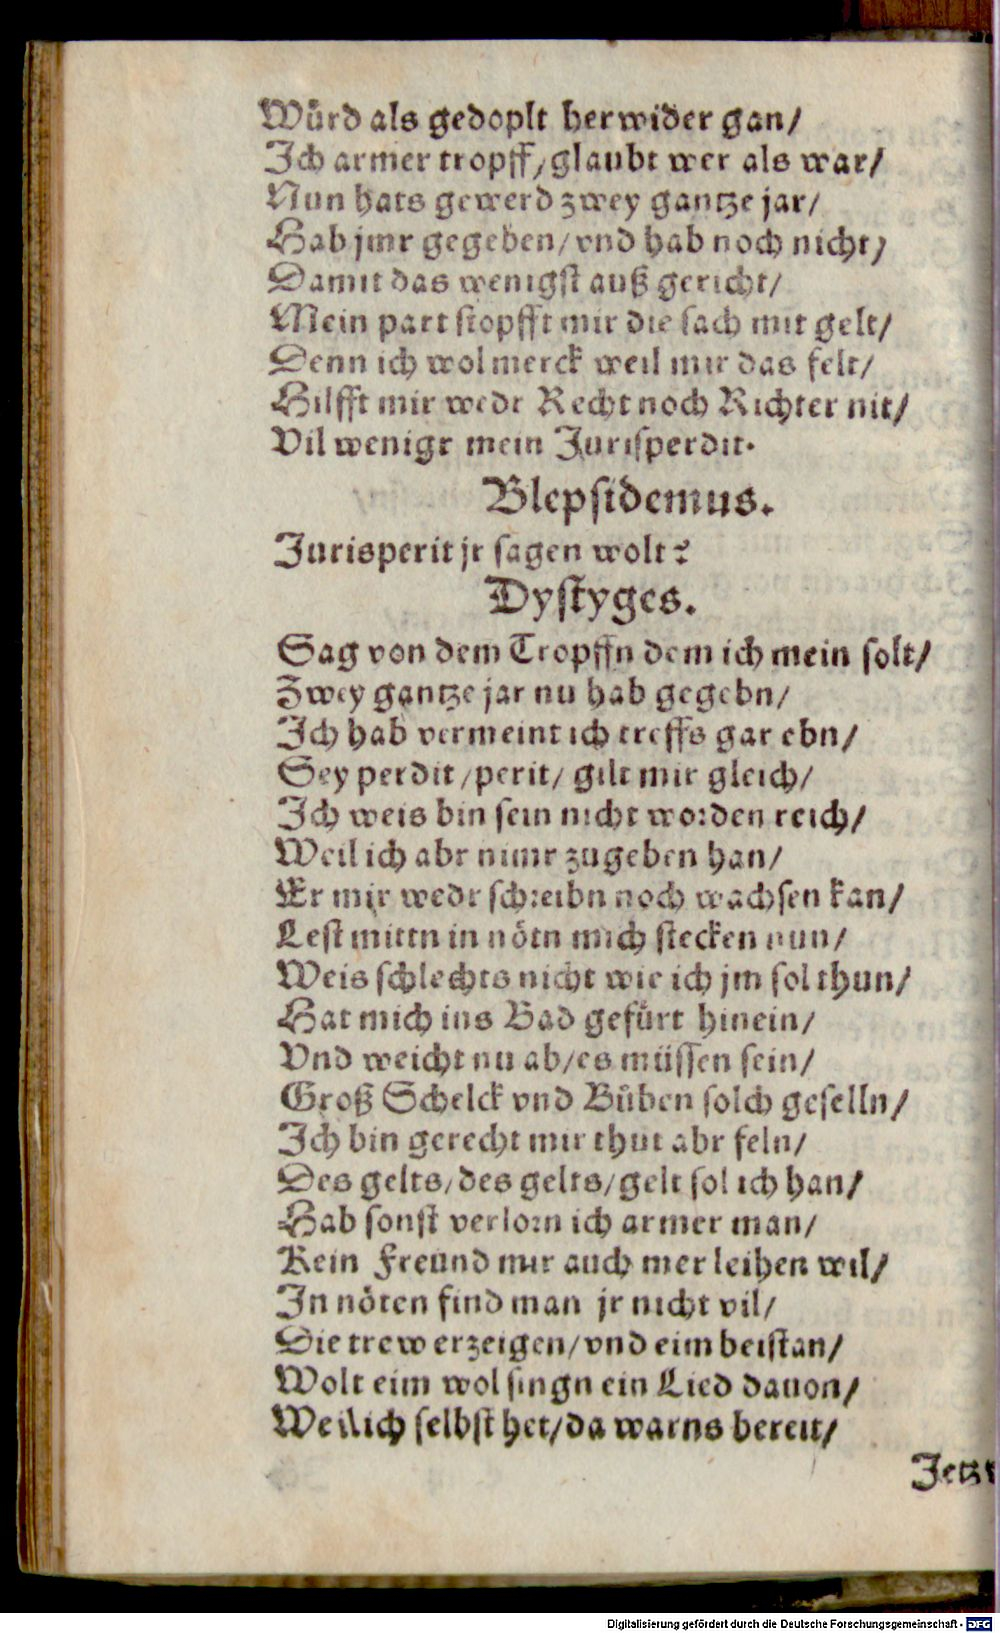 Würd als gedoplt herwider gan/
Ich armer tropff/glaubt wer als war/
Nun hats gewerd zwey gantze jar/
Hab jmr gegeben/vnd hab noch nicht/
Damit das wenigst auß gericht/
Mein part stopfft mir die sach mit gelt/
Denn ich wol merck weil mir das felt/
Hilfft mir wedr Recht noch Richter nit/
Vil wenigr mein Jurisperdit.
Blepsidemus.
Jurisperit jr sagen wolt?
Dystyges.
Sag von dem Tropffn dem ich mein solt/
Zwey gantze jar nu hab gegebn/
Ich hab vermeint ich treffs gar ebn/
Sey perdit/perit/ gilt mir gleich/
Ich weis bin sein nicht worden reich/
Weil ich abr nimr zugeben han/
Er mir wedr schreibn noch wachsen kan/
Lest mittn in nötn mich stecken nun/
Weis schlechts nicht wie ich jm sol thun/
Hat mich ins Bad gefürt hinein/
Vnd weicht nu ab/es müssen sein/
Groß Schelck vnd Büben solch geselln/
Ich bin gerecht mir thut abr feln/
Des gelts/des gelts/gelt sol ich han/
Hab sonst verlorn ich armer man/
Kein Freund mir auch mer leihen wil/
In nöten find man jr nicht vil/
Die trew erzeigen/vnd eim beistan/
Wolt eim wol singn ein Lied dauon/
Weil ich selbst het/da warns bereit/
Digitalisierung gefördert durch die Deutsche Forschungsgemeinschaft - DFG